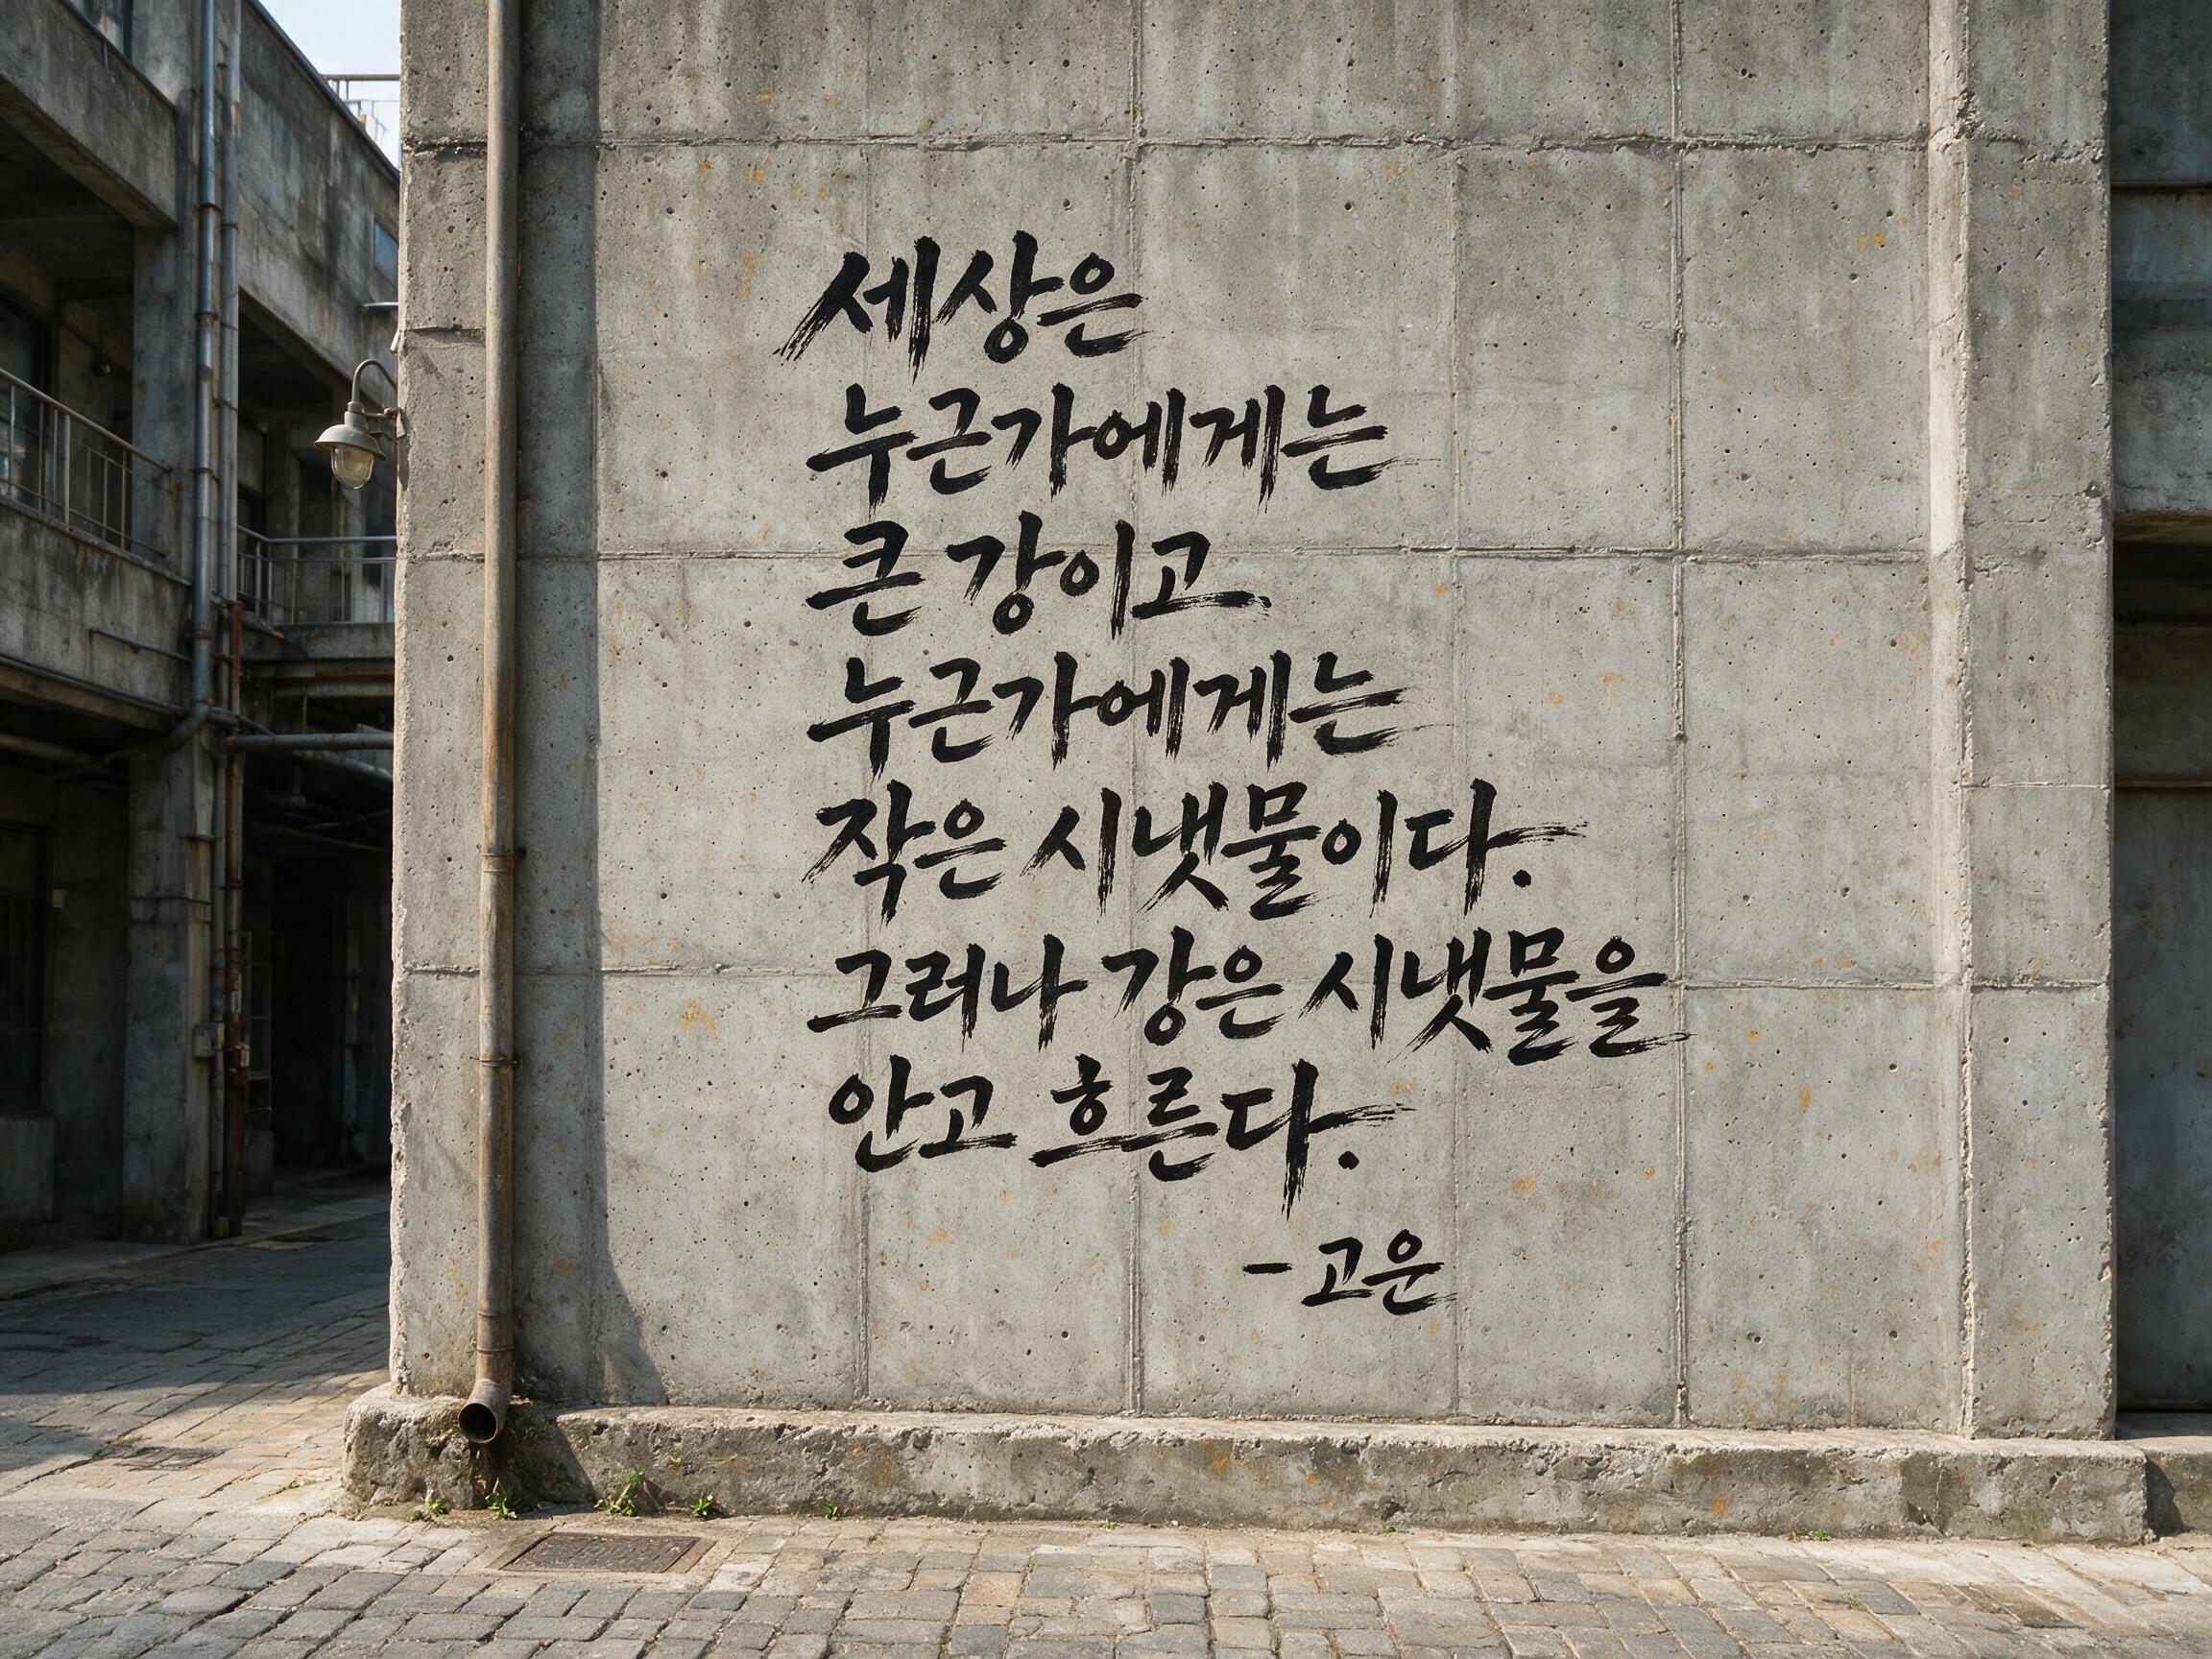 세상은
누근가에게는
큰 강이고
누근가에게는
작은 시냇물이다.
그러나 강은 시냇물을
안고 흐른다.
- 고운